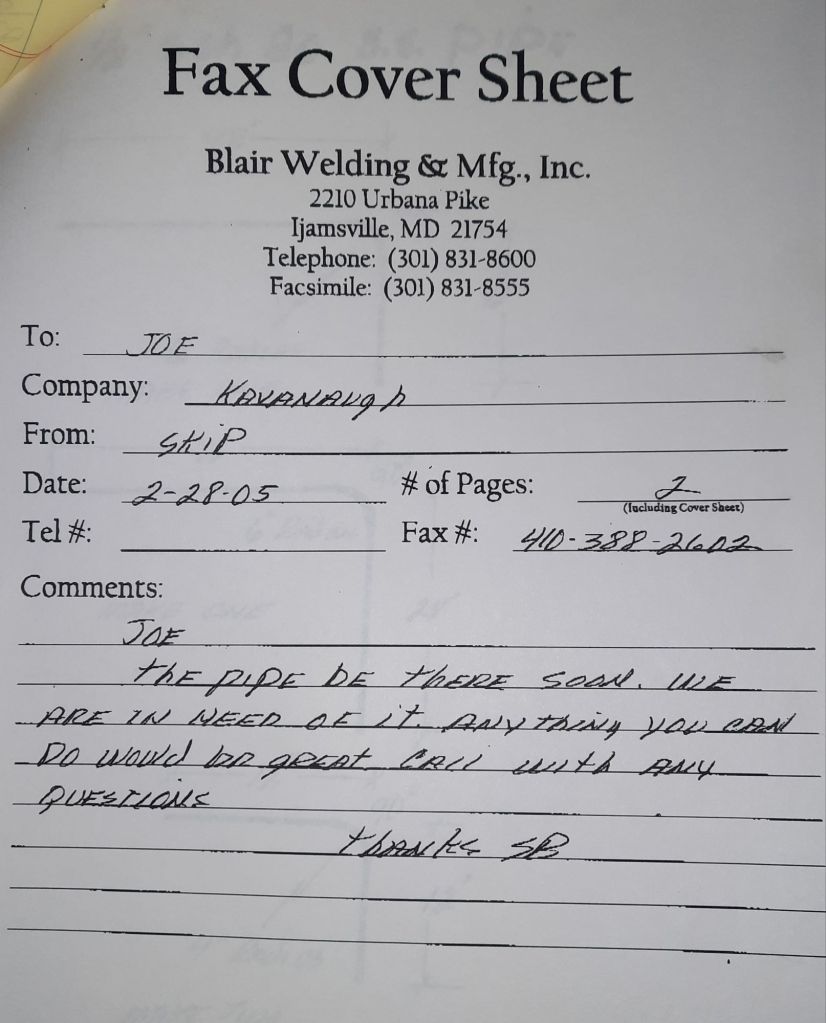 Fax Cover Sheet
Blair Welding & Mfg., Inc.
2210 Urbana Pike
Ijamsville, MD 21754
Telephone: (301) 831-8600
Facsimile: (301) 831-8555
To: JOE
Company: KAVANAUGh
From: SKiP
Date: 2-28-05 # of Pages: 2
(Including Cover Sheet)
Tel #: Fax #: 410-388-2602
Comments:
JOE
thE PIPE BE thERE SOON. WE
ARE IN NEED OF it. ANY thiNG YOU CAN
DO Would BE GREAT CAll with ANY
QUESTIONS
thANKS SB